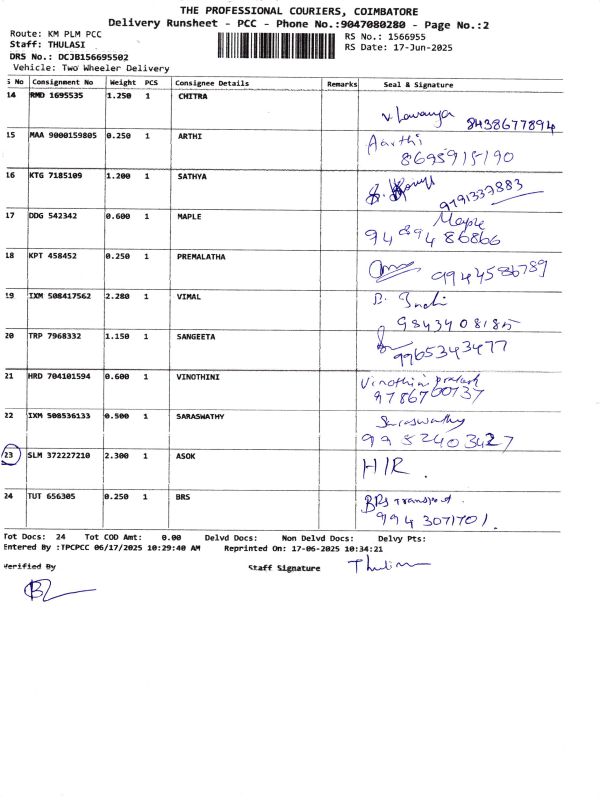 THE PROFESSIONAL COURIERS, COIMBATORE
Delivery Runsheet - PCC - Phone No.:9047080280 - Page No.:2
Route: KM PLM PCC RS No.: 1566955
Staff: THULASI RS Date: 17-Jun-2025
DRS No.: DCJB156695502
Vehicle: Two Wheeler Delivery
S No Consignment No Weight PCS Consignee Details Remarks Seal & Signature
14 RMD 1695535 1.250 1 CHITRA
V. Lavanya 8438677894
15 MAA 9000159805 0.250 1 ARTHI Aarthi
8695915190
16 KTG 7185109 1.200 1 SATHYA
9791337883
17 DDG 542342 0.600 1 MAPLE Maple
9489486866
18 KPT 458452 0.250 1 PREMALATHA
9944586789
19 IXM 508417562 2.280 1 VIMAL
9843408185
20 TRP 7968332 1.150 1 SANGEETA
9965343477
21 HRD 704101594 0.600 1 VINOTHINI Vinothini prakash
9786700737
22 IXM 508536133 0.500 1 SARASWATHY Saraswathy
9952403427
23 SLM 372227210 2.300 1 ASOK H/R.
24 TUT 656305 0.250 1 BRS BRS Transport.
9943071701.
Tot Docs: 24 Tot COD Amt: 0.00 Delvd Docs: Non Delvd Docs: Delvy Pts:
Entered By :TPCPCC 06/17/2025 10:29:40 AM Reprinted On: 17-06-2025 10:34:21
Verified By Staff Signature